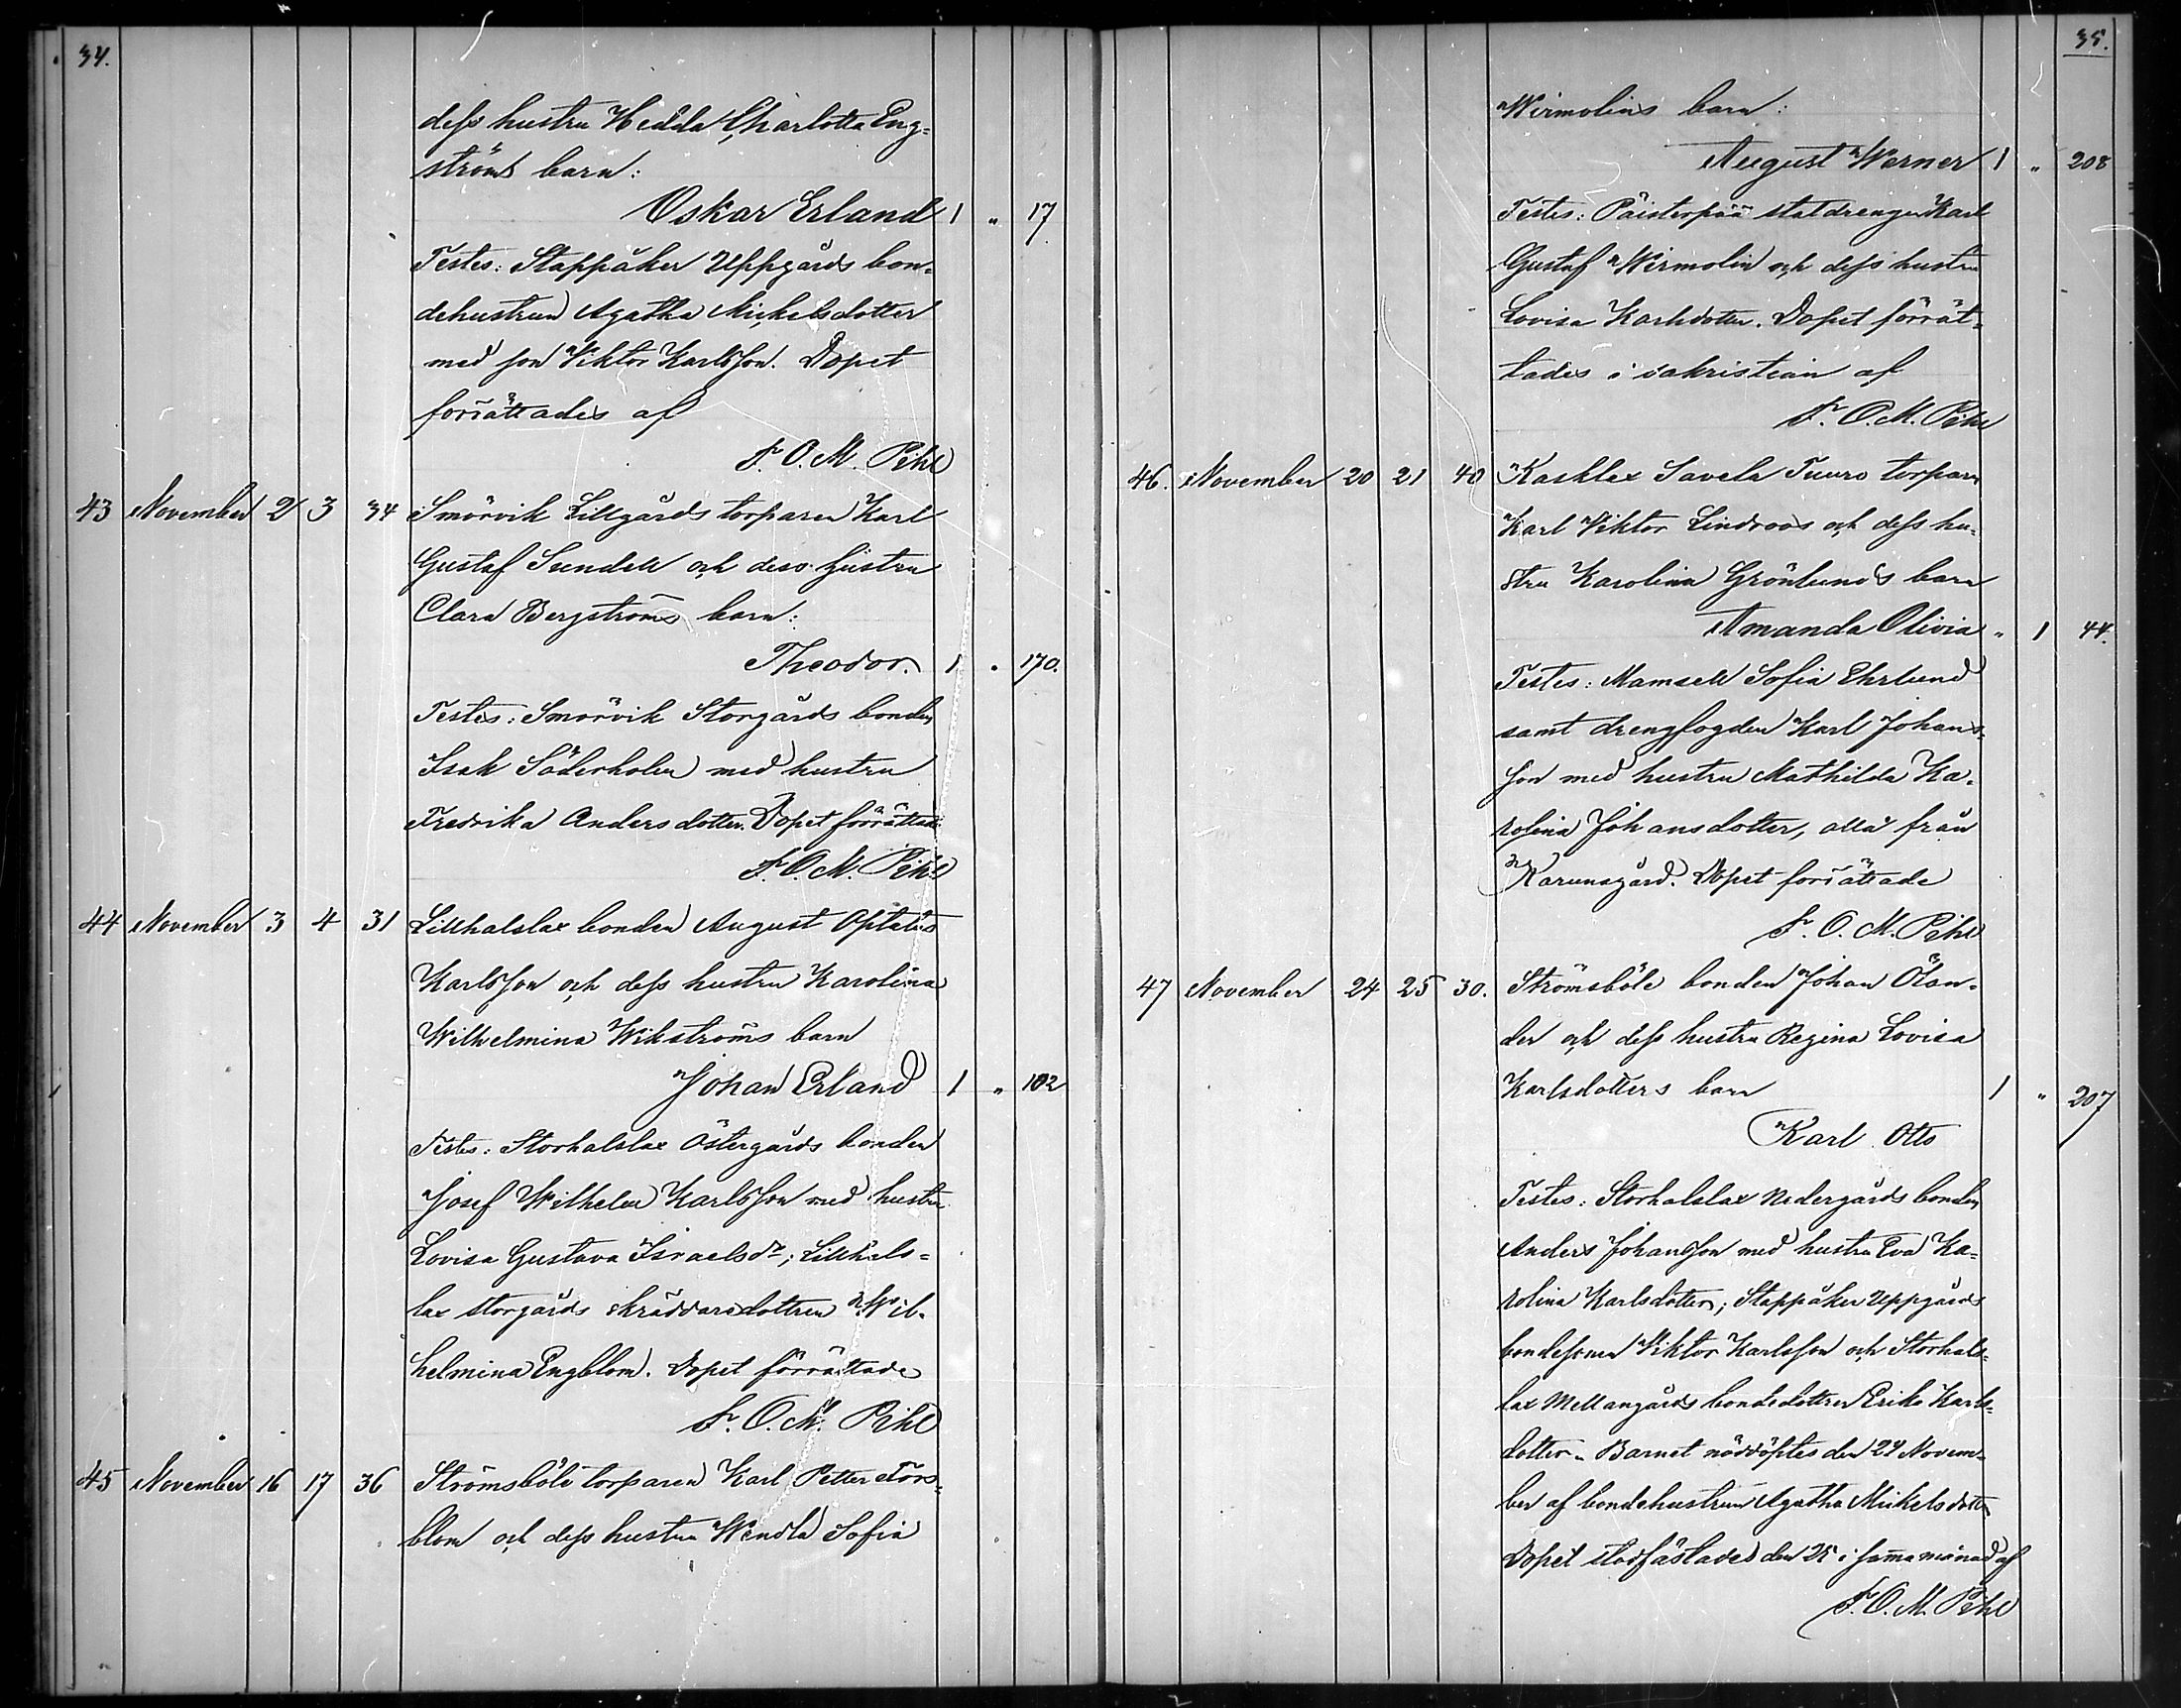 34.
dess hustru Hedda Charlotta Eng=
ströms barn:
Oskar Erland 1 " 17
Testes: Stappåker Uppgårds bon=
dehustrun Agatha Mickelsdotter
med son Viktor Karlsson. Dopet
förrättades af
F. O. M. Pihl
43 November 2 3 34 Smörvik Lillgårds torparen Karl
Gustaf Sundell och dess hustru
Clara Bergströms barn:
Theodor. 1 " 170.
Testes: Smörvik Storgårds bonden
Isak Söderholm med hustru
Fredrika Andersdotter. Dopet förrättade
F. O. M. Pihl
44 November 3 4 31 Lillhalslax bonden August Optatus
Karlsson och dess hustru Karolina
Wilhelmina Wikströms barn
Johan Erland 1 " 102
Testes: Storhalslax Östergårds bonden
Josef Wilhelm Karlsson med hustru
Lovisa Gustava Israelsdr; Lillhals=
lax storgårds skräddaredottren Wil=
helmina Engblom. Dopet förrättade
F. O. M. Pihl
45 November 16 17 36 Strömsböle torparen Karl Petter Fors=
blom och dess hustru Wendla Sofia
35.
Wirmolins barn:
August Werner 1 " 208
Testes: Päisterpää statdrengen Karl
Gustaf Wirmolin och dess hustru
Lovisa Karlsdotter. Dopet förrät=
tades i sakristian af
F. O. M. Pihl
46. November 20 21 40 Kasklax Savela Tuuro torparn
Karl Viktor Lindroos och dess hu=
stru Karolina Grönlunds barn
Amanda Olivia " 1 44.
Testes: Mamsell Sofia Ehrlund
samt drengfogden Karl Johans=
son med hustru Mathilda Ka=
rolina Johansdotter, alla från
Karunagård. Dopet förrättade
F. O. M. Pihl
47 November 24 25 30. Strömsböle bonden Johan Ölan=
der och dess hustru Regina Lovisa
Karlsdotters barn 1 " 207
Karl Otto
Testes: Storhalslax Nedergårds bonden
Anders Johansson med hustru Eva Ka=
rolina Karlsdotter; Stappåker Uppgårds
bondesonen Viktor Karlsson och Storhals=
lax Mellangårds bondedottren Erika Karls=
dotter. Barnet nöddöptes den 24 Novem=
ber af bondehustrun Agatha Mickelsdotter
Dopet stadfästades den 25 i samma månad af
F. O. M. Pihl